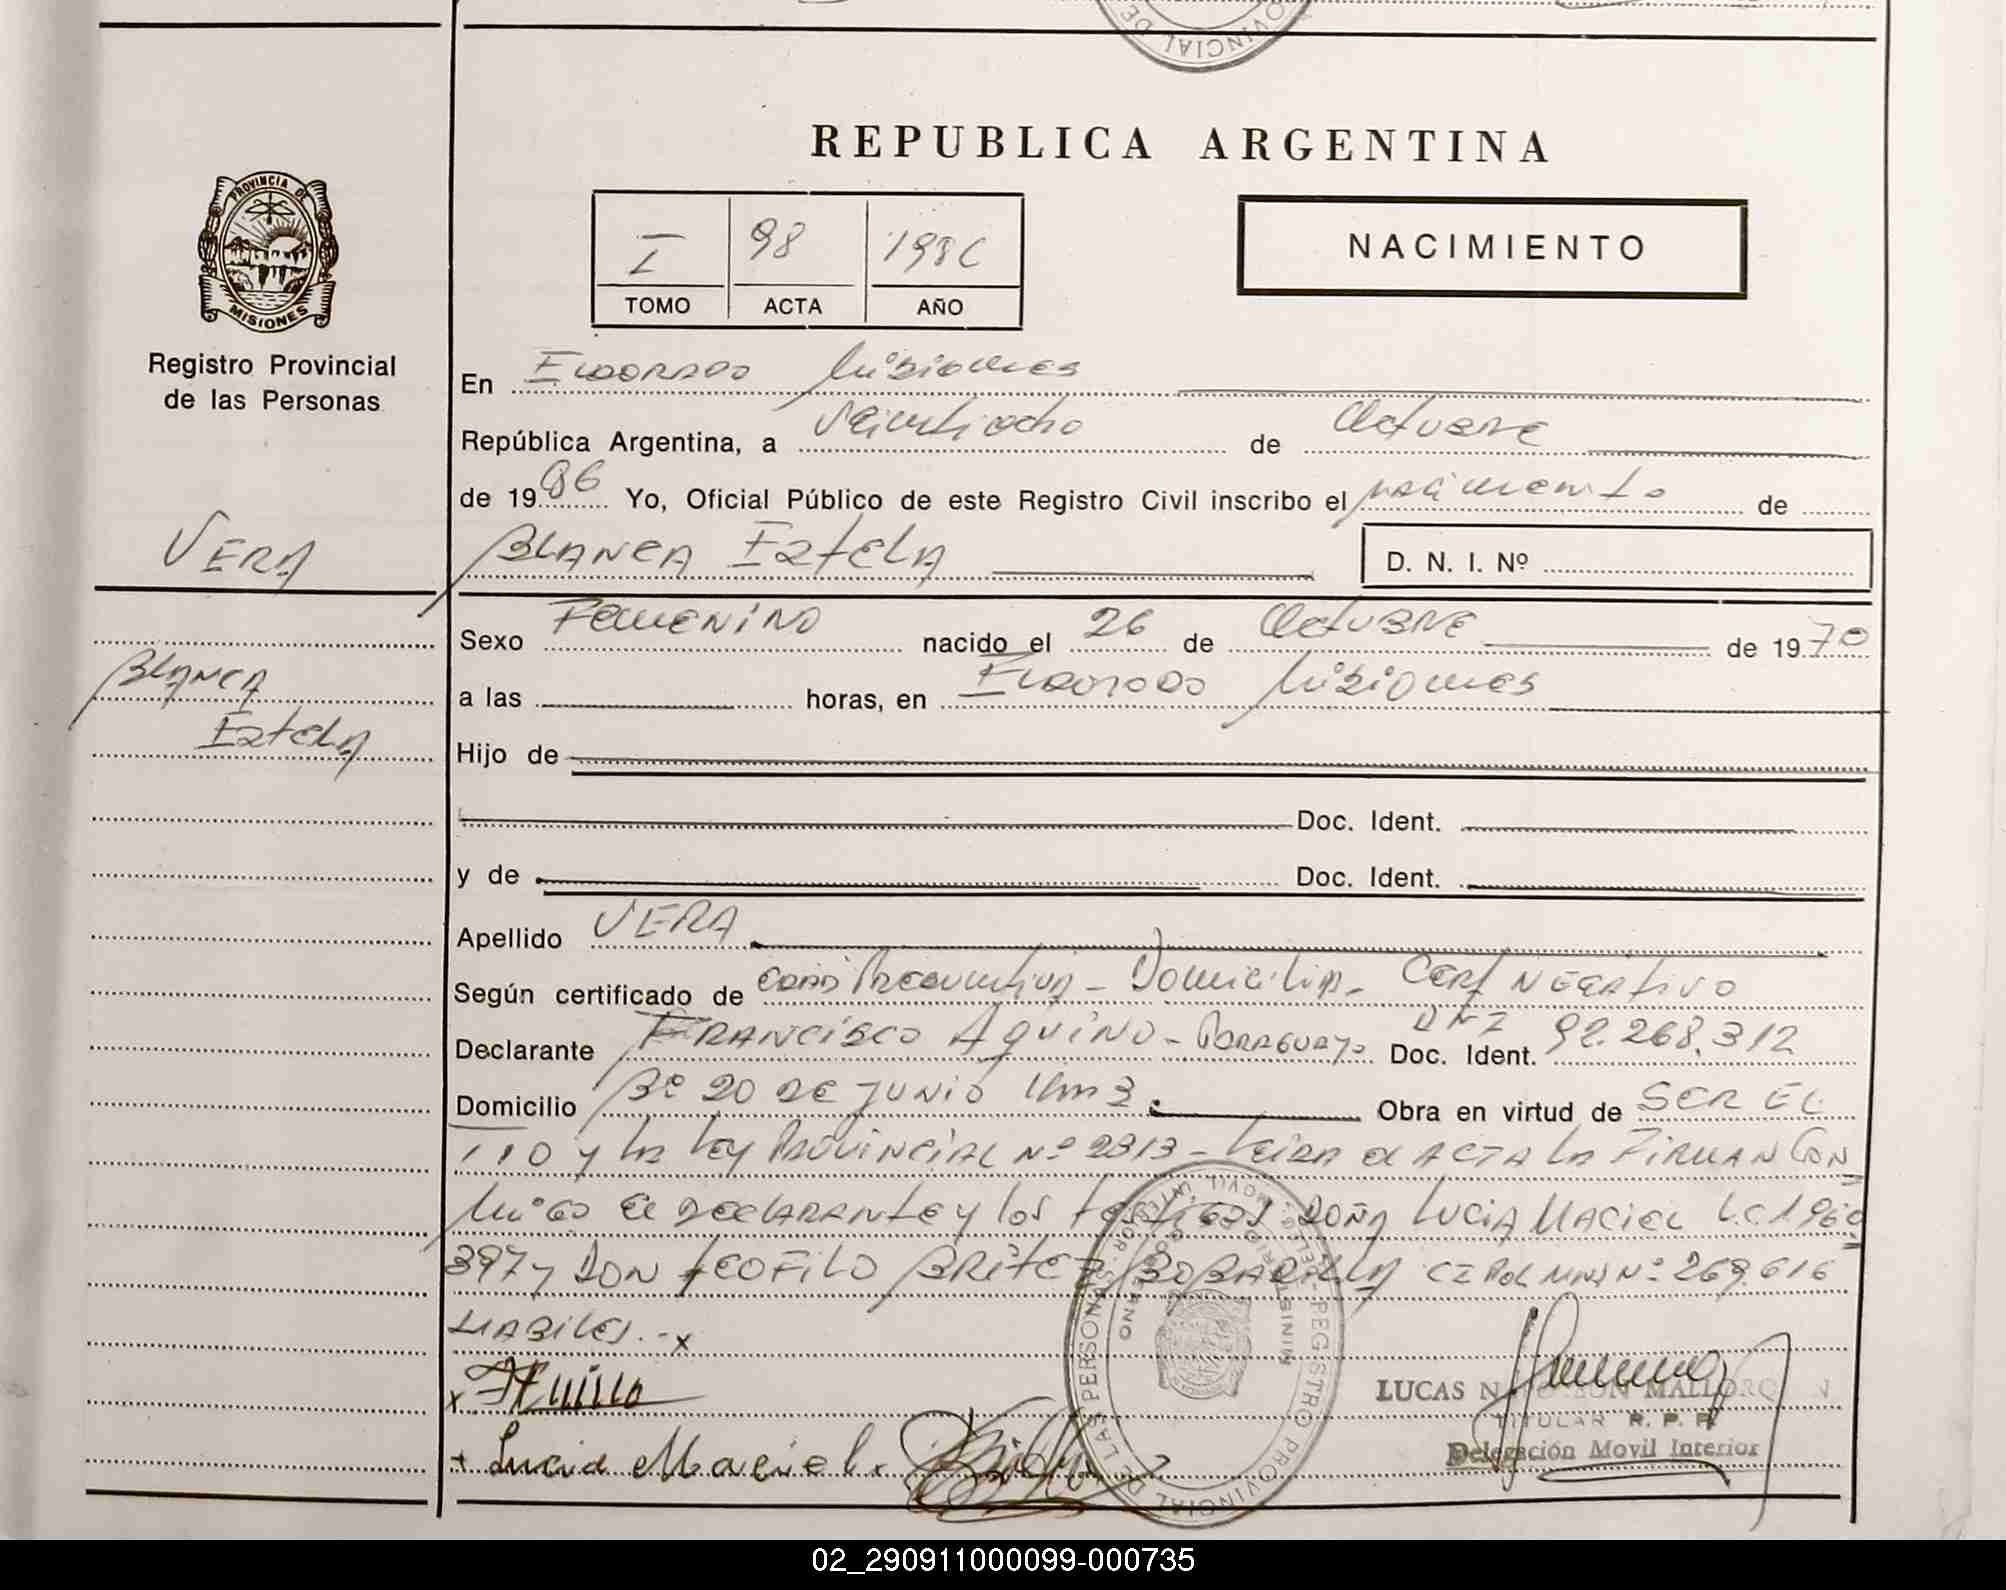 REPUBLICA ARGENTINA
PROVINCIA DE
MISIONES
Registro Provincial
de las Personas
I 98 1986
TOMO ACTA AÑO
NACIMIENTO
En Eldorado Misiones
República Argentina, a Veintiocho de Octubre
de 1986 Yo, Oficial Público de este Registro Civil inscribo el nacimiento de
VERA
BLANCA EstELA
D. N. I. Nº
Sexo FEMENINO nacido el 26 de OctuBRE de 1970
BLANCA
EstELA
a las horas, en Eldorado Misiones
Hijo de
Doc. Ident.
y de Doc. Ident.
Apellido VERA
Según certificado de Presuntiva - Domicilia - CERt NEGAtivo
Declarante FRANCISCO AQUINO - PARAGUAYO Doc. Ident. DNI 92.268.312
Domicilio Bº 20 DE JUNIO Km 3. Obra en virtud de SER EL
TIO y La Ley PROVINCIAL Nº 2313 - Leida el ACTA La FIRMAN CON
Migo El DECLARANte y los testigos DOÑA LUCIA MACIEL L.C 1960
397 y DON tEOFILO BRITEZ BOBADILLA CI Pol Mns Nº 269.616
HABILES. - x
x
+ Lucia Maciel.
REGISTRO PROVINCIAL DE LAS PERSONAS
MINISTERIO GOBIERNO
LUCAS N MALLORQUIN
TITULAR R. P. P.
Delegación Movil Interior
02_290911000099-000735